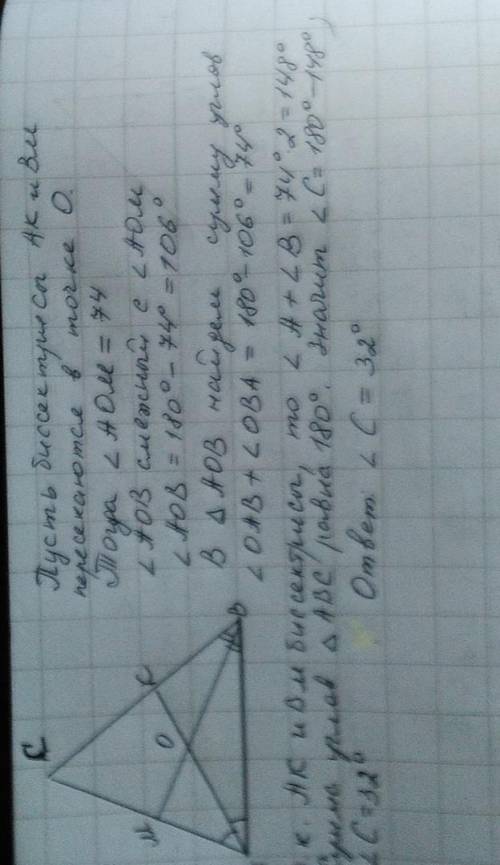 Пусть биссектрисы АК и ВМ
пересекаются в точке О.
Тогда ∠АОМ = 74
∠АОВ смежный с ∠АОМ
∠АОВ = 180° - 74° = 106°
В △АОВ найдем сумму углов
∠ОАВ + ∠ОВА = 180° - 106° = 74°
к. АК и ВМ биссектрисы, то ∠А + ∠В = 74°·2 = 148°
сумма углов △АВС равна 180°. Значит ∠С = 180° - 148°,
∠С = 32°
Ответ: ∠С = 32°
С
М
О
К
В